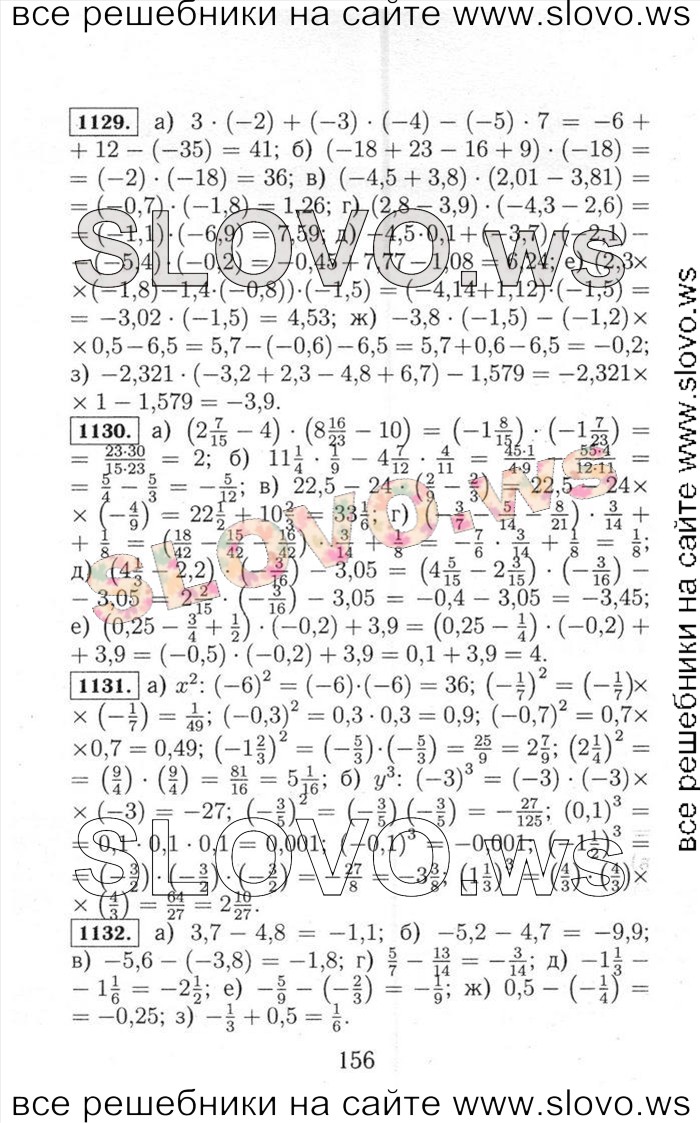 все решебники на сайте www.slovo.ws
1129. а) 3 · (−2) + (−3) · (−4) − (−5) · 7 = −6 +
+ 12 − (−35) = 41; б) (−18 + 23 − 16 + 9) · (−18) =
= (−2) · (−18) = 36; в) (−4,5 + 3,8) · (2,01 − 3,81) =
= (−0,7) · (−1,8) = 1,26; г) (2,8 − 3,9) · (−4,3 − 2,6) =
= (−1,1) · (−6,9) = 7,59; д) −4,5·0,1+(−3,7)·(−2,1)−
−(−5,4) · (−0,2) = −0,45 + 7,77 − 1,08 = 6,24; е) (2,3×
×(−1,8)−1,4·(−0,8))·(−1,5) = (−4,14+1,12)·(−1,5) =
= −3,02 · (−1,5) = 4,53; ж) −3,8 · (−1,5) − (−1,2)×
×0,5−6,5 = 5,7−(−0,6)−6,5 = 5,7+0,6−6,5 = −0,2;
з) −2,321 · (−3,2 + 2,3 − 4,8 + 6,7) − 1,579 = −2,321×
× 1 − 1,579 = −3,9.
1130. а) (2 7/15 − 4) · (8 16/23 − 10) = (−1 8/15) · (−1 7/23) =
= 23·30/15·23 = 2; б) 11 1/4 · 1/9 − 4 7/12 · 4/11 = 45·1/4·9 − 55·4/12·11 =
= 5/4 − 5/3 = −5/12; в) 22,5 − 24 · (2/9 − 2/3) = 22,5 − 24×
× (−4/9) = 22 1/2 + 10 2/3 = 33 1/6; г) (−3/7 − 5/14 − 8/21) · 3/14 +
+ 1/8 = (18/42 − 15/42 − 16/42) · 3/14 + 1/8 = −7/6 · 3/14 + 1/8 = 1/8;
д) (4 1/3 − 2,2) · (−3/16) − 3,05 = (4 5/15 − 2 3/15) · (−3/16) −
− 3,05 = 2 2/15 · (−3/16) − 3,05 = −0,4 − 3,05 = −3,45;
е) (0,25 − 3/4 + 1/2) · (−0,2) + 3,9 = (0,25 − 1/4) · (−0,2) +
+ 3,9 = (−0,5) · (−0,2) + 3,9 = 0,1 + 3,9 = 4.
1131. а) x²: (−6)² = (−6)·(−6) = 36; (−1/7)² = (−1/7)×
× (−1/7) = 1/49; (−0,3)² = 0,3 · 0,3 = 0,9; (−0,7)² = 0,7×
×0,7 = 0,49; (−1 2/3)² = (−5/3)·(−5/3) = 25/9 = 2 7/9; (2 1/4)² =
= (9/4) · (9/4) = 81/16 = 5 1/16; б) y³: (−3)³ = (−3) · (−3)×
× (−3) = −27; (−3/5)² = (−3/5) (−3/5) = −27/125; (0,1)³ =
= 0,1 · 0,1 · 0,1 = 0,001; (−0,1)³ = −0,001; (−1 1/2)³ =
= (−3/2) · (−3/2) · (−3/2) = −27/8 = −3 3/8; (1 1/3)³ = (4/3) · (4/3)×
× (4/3) = 64/27 = 2 10/27.
1132. а) 3,7 − 4,8 = −1,1; б) −5,2 − 4,7 = −9,9;
в) −5,6 − (−3,8) = −1,8; г) 5/7 − 13/14 = −3/14; д) −1 1/3 −
− 1 1/6 = −2 1/2; е) −5/9 − (−2/3) = −1/9; ж) 0,5 − (−1/4) =
= −0,25; з) −1/3 + 0,5 = 1/6.
156
SLOVO.ws
SLOVO.ws
SLOVO.ws
все решебники на сайте www.slovo.ws
все решебники на сайте www.slovo.ws